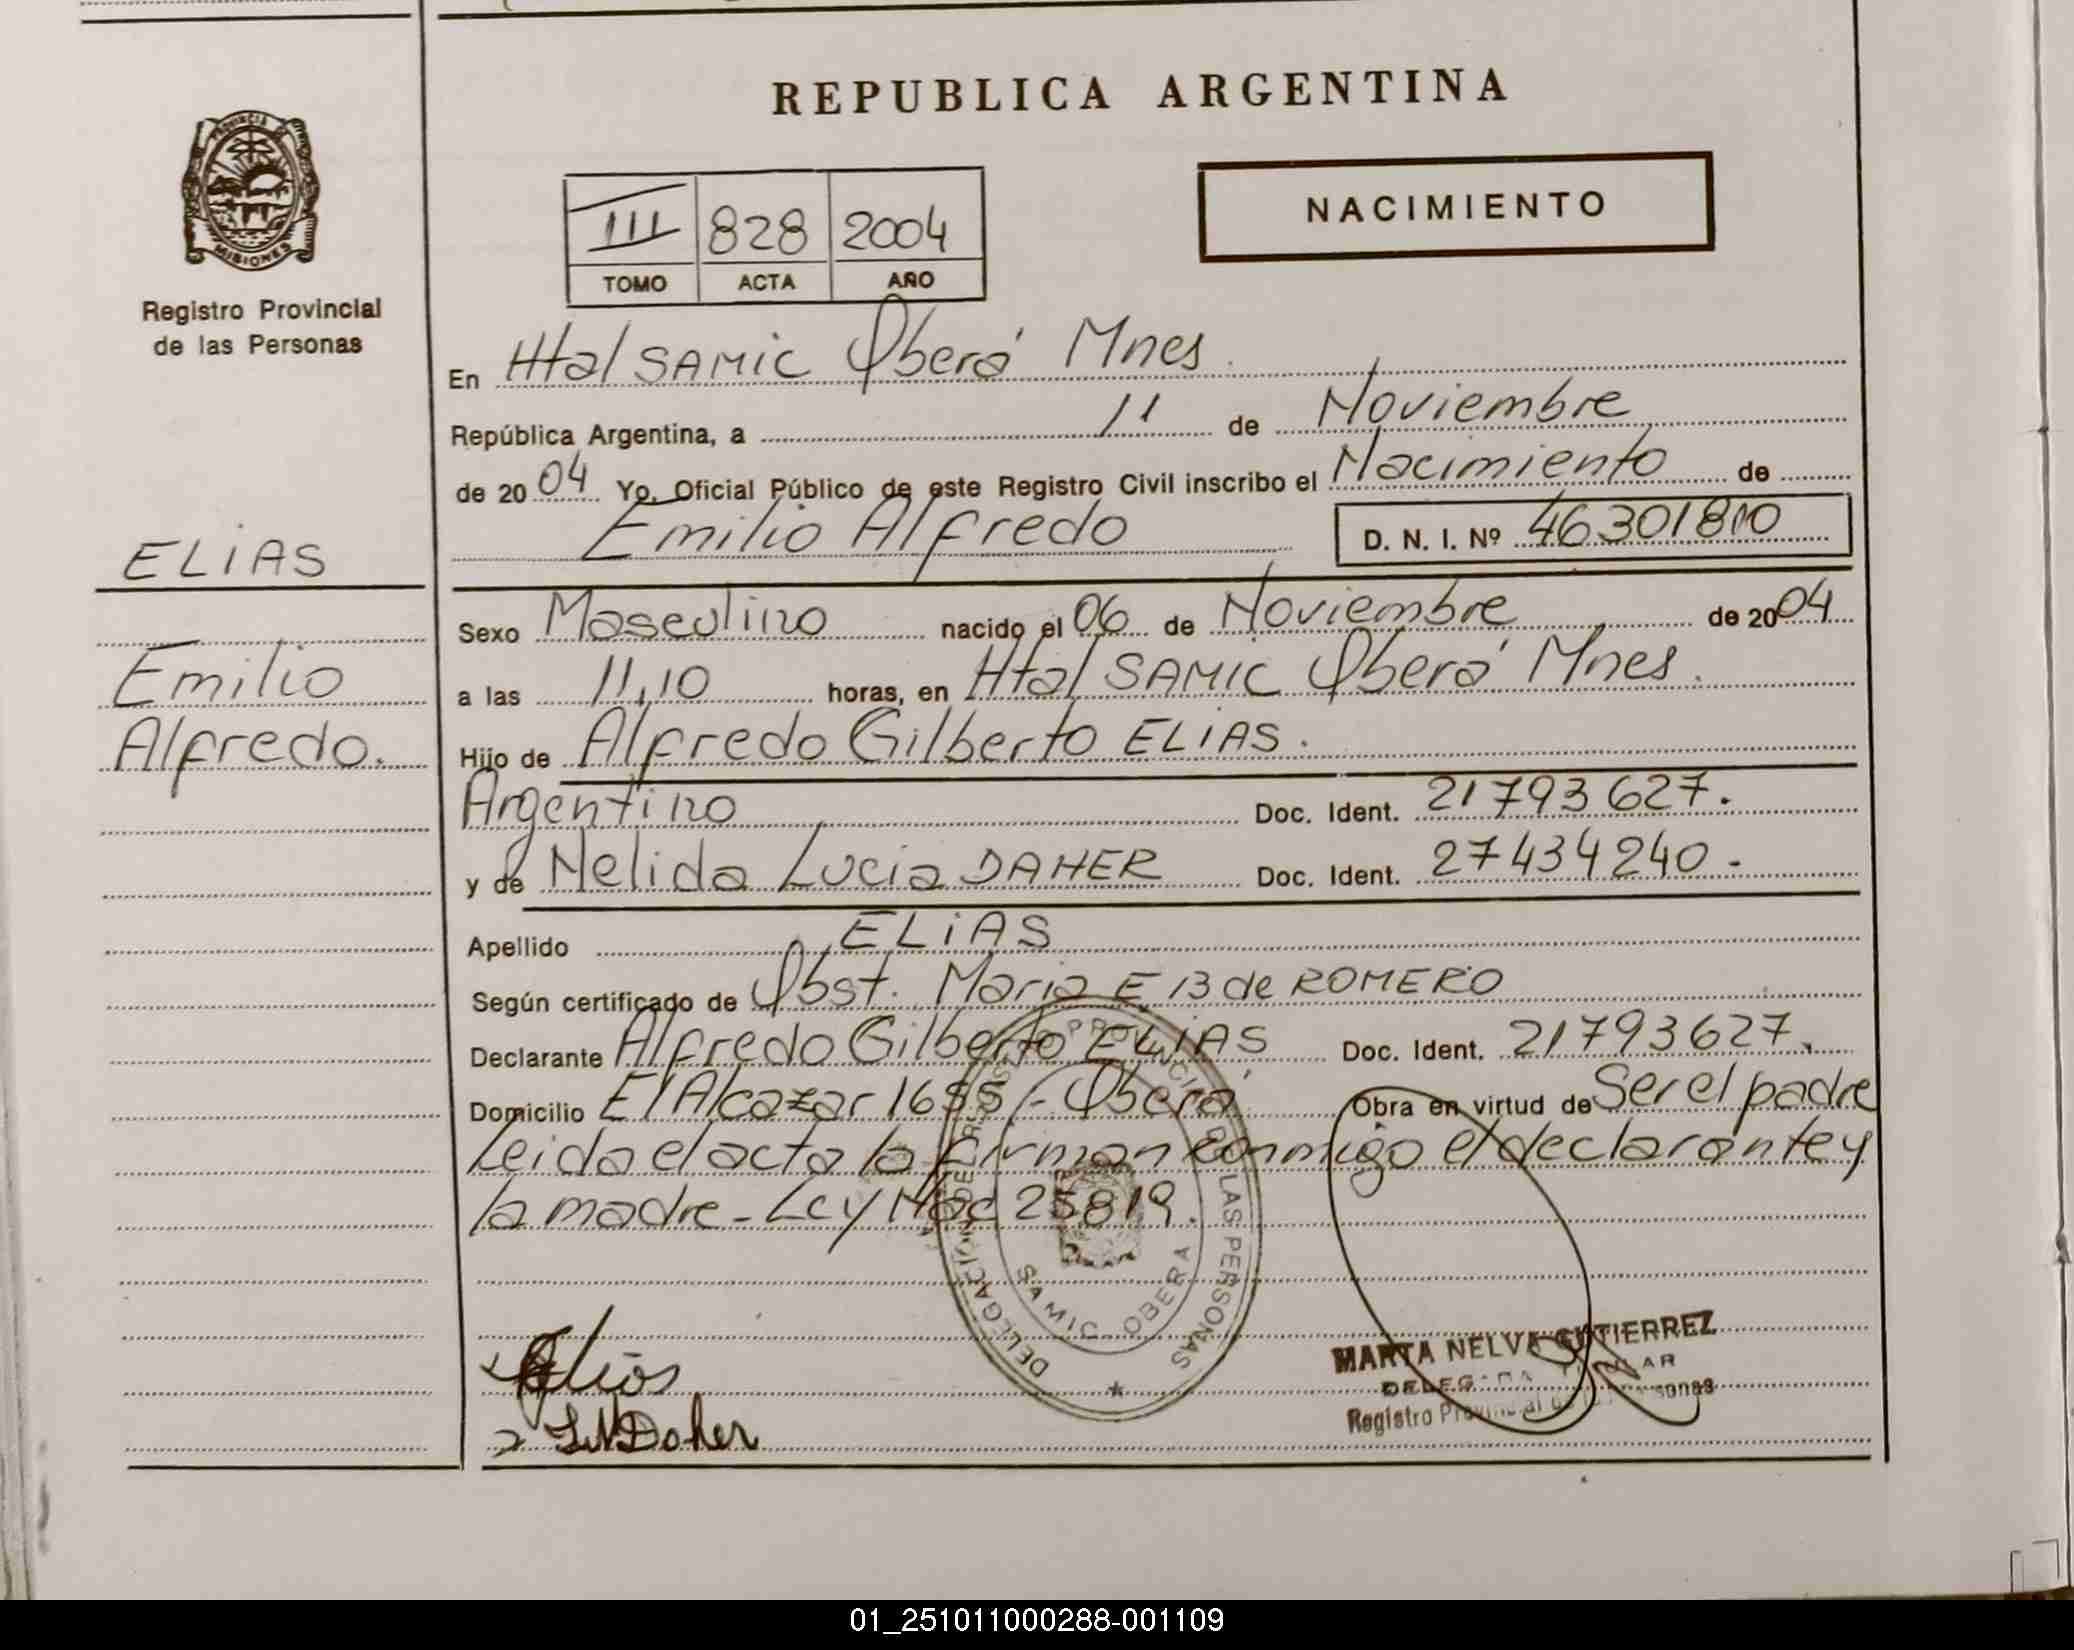 REPUBLICA ARGENTINA
PROVINCIA DE MISIONES
Registro Provincial
de las Personas
III 828 2004
TOMO ACTA AÑO
NACIMIENTO
En Htal SAMIC Oberá Mnes.
República Argentina, a 11 de Noviembre
de 2004 Yo, Oficial Público de este Registro Civil inscribo el Nacimiento de
Emilio Alfredo D. N. I. Nº 46301810
ELIAS
Emilio
Alfredo.
Sexo Masculino nacido el 06 de Noviembre de 2004
a las 11,10 horas, en Htal SAMIC Oberá Mnes.
Hijo de Alfredo Gilberto ELIAS.
Argentino Doc. Ident. 21793627.
y de Nelida Lucia DAHER Doc. Ident. 27434240-
Apellido ELIAS
Según certificado de Obst. Maria E B de ROMERO
Declarante Alfredo Gilberto ELIAS Doc. Ident. 21793627.
Domicilio El Alcazar 1655 - Oberá Obra en virtud de Ser el padre
Leida el acta la firman conmigo el declarante y
la madre - Ley Nac 25819.
DELEGACION DEL REGISTRO PROVINCIAL DE LAS PERSONAS
SAMIC OBERA
Elias
LNDaher
MARTA NELVA GUTIERREZ
DELEGADA TITULAR
Registro Provincial de las Personas
01_251011000288-001109